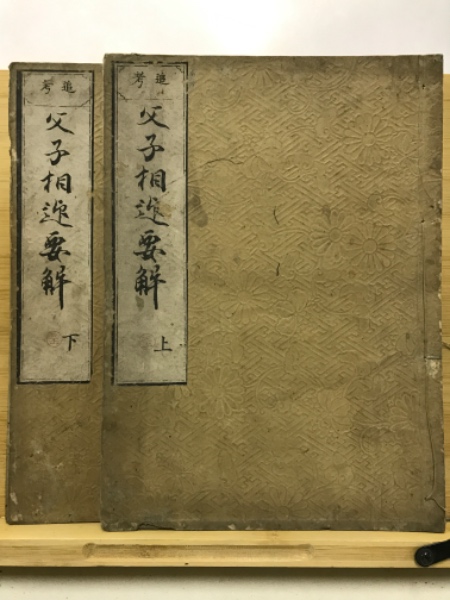 追考
父子相迎要解
上
追考
父子相迎要解
下